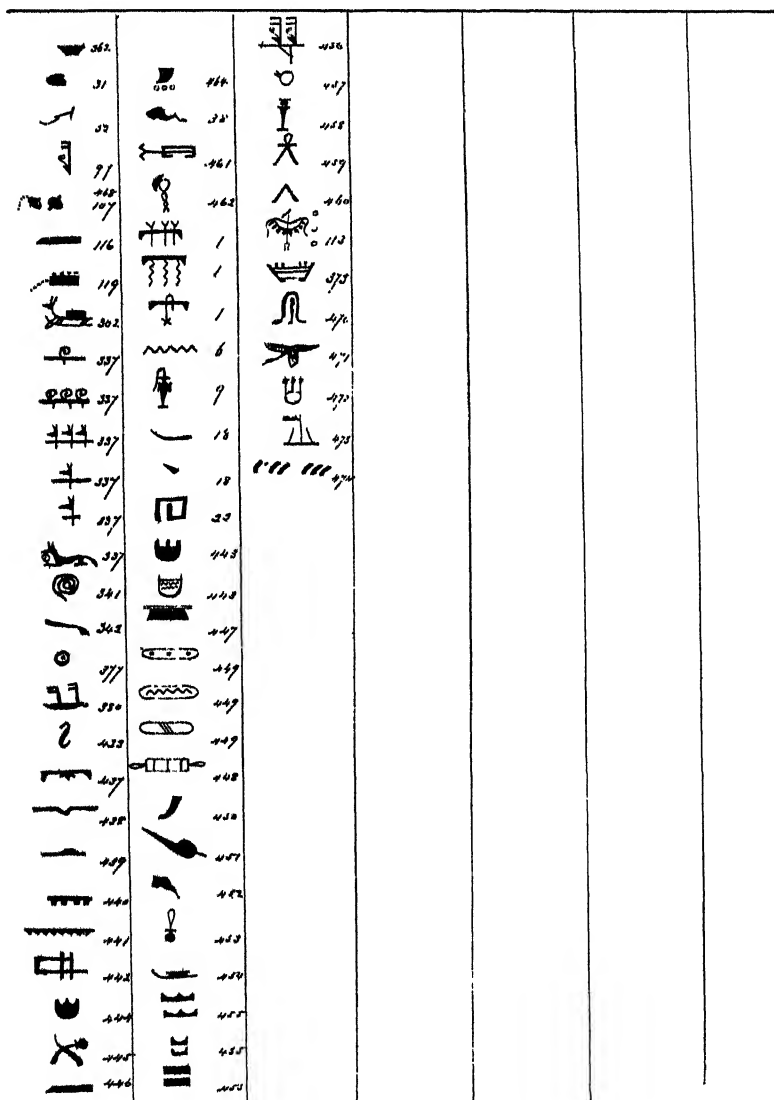 362
31
32
97
468
107
116
119
302
337
337
337
337
337
337
341
342
377
380
433
437
438
439
440
441
442
444
445
446
464
38
461
462
1
1
1
6
9
18
18
23
443
448
447
449
449
449
448
450
451
452
453
454
455
455
453
456
457
458
459
460
113
373
470
471
472
473
474